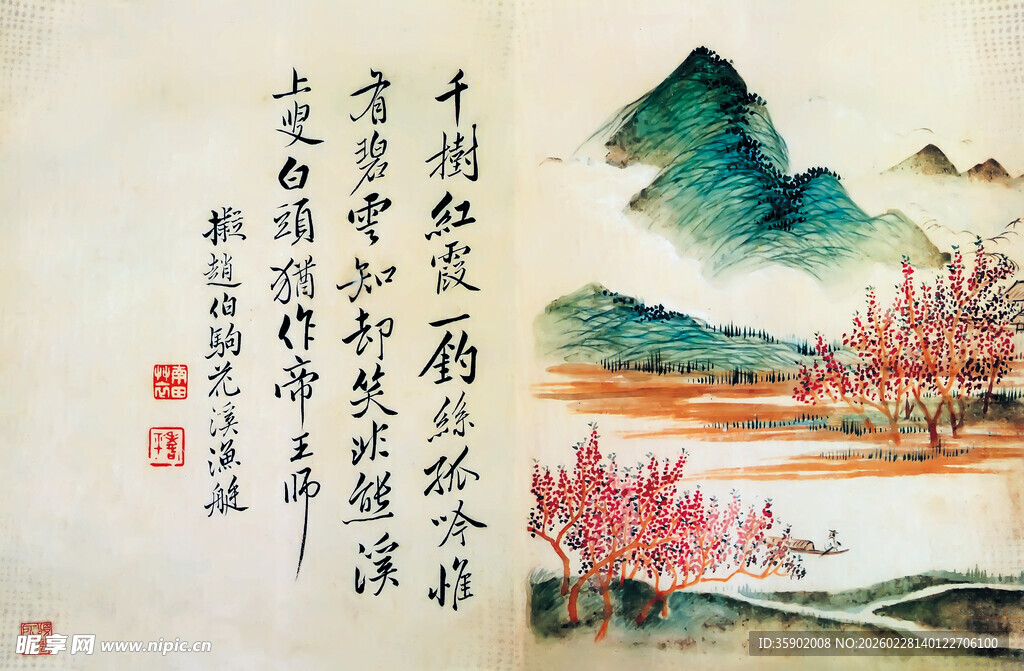 千樹紅霞一釣絲孤吟惟
有碧雲知却笑非熊溪
上叟白頭猶作帝王師
擬趙伯駒花溪漁艇
昵享网 www.nipic.cn
ID:35902008 NO:20260228140122706100